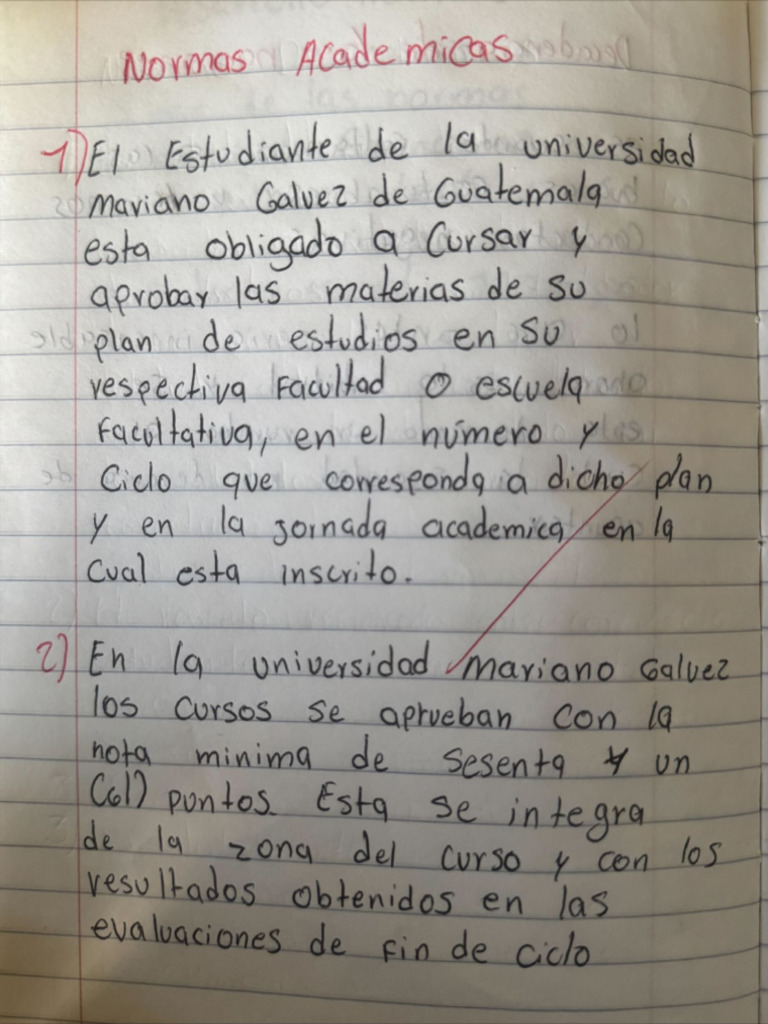 Normas Academicas
1) El Estudiante de la universidad
Mariano Galvez de Guatemala
esta obligado a Cursar y
aprobar las materias de su
plan de estudios en su
respectiva Facultad o escuela
Facultativa, en el número y
Ciclo que corresponda a dicho plan
y en la jornada academica en la
cual esta inscrito.
2) En la universidad Mariano Galvez
los cursos se aprueban con la
nota minima de sesenta y un
(61) puntos. Esta se integra
de la zona del curso y con los
resultados obtenidos en las
evaluaciones de fin de ciclo